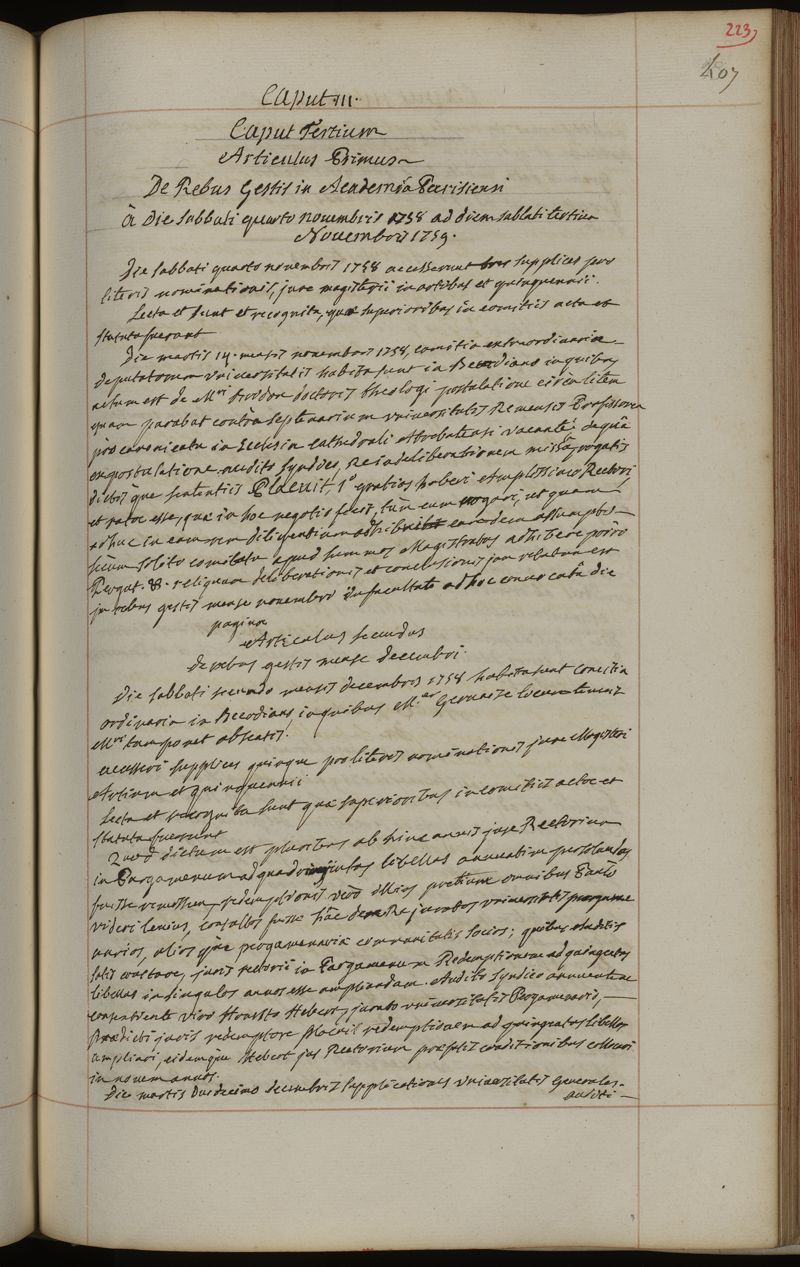 223
407
Caput III.
Caput Tertium
Articulus Primus
De Rebus Gestis in Academiâ Parisiensi
à Die Sabbati quarto novembris 1758 ad diem sabbati tertium
Novembris 1759.
Die sabbati quarto novembris 1758 accesserunt tres supplices pro
literis nominationis, jure magisterii in artibus et quinquennii.
Lecta et sunt et recognita, quæ superioribus in comitiis acta et
statuta fuerant
Die martis 14. mensis novembris 1758, comitia extraordinaria
deputatorum universitatis habita sunt in Becodiano in quibus
actum est de Mri doctoris theologi postulatione circa litem
quam parabat contrà septenarium universitatis Remensis Professorem
pro canonicatu in Ecclesia Cathedrali Attrebatensi vacante, de quâ
expostulatione audito syndico, re in deliberationem missâ, rogatis
dictisque sententiis Placuit, 1° gratias haberi Amplissimo Rectori
et ratoc esse, quæ in hoc negotio fecit, tùm eum rogari, ut quam
adhuc in eam rem diligentiam adhibuit eamdem assumpto
secum solito comitatu apud summos Magistratus adhibere porrò
Pergat. &. reliquum deliberationis et conclusionis jam relatum est
in rebus gestis mense novembri in facultate ad hoc convocata die
pagina
Articulus secundus
de rebus gestis mense decembri.
Die sabbati secundo mensis decembris 1758 habita sunt comitia
ordinaria in Becodiano, in quibus M.er Gervaise locum tenens
Mri tamponet absentis.
accessere supplices quinque pro literis nominationis jure Magisterii
Artium et quinquennii
Lecta et recognita sunt quæ superioribus in comitiis acta et
statuta fuerunt
Quod dictum est pluribus ab hinc annis jure Rectorium
in Pargamenum ad quadringintas libellas annuatim persolvendas
fuisse remissum, redemptionis verò illius pretium omnibus tanto
videri lenius, consultos fuisse hâc de re juratos universitatis pargame
narios, aliosque pergamenariæ communitatis socios; quibus auditis
satis constare, juris rectorii in Pargamenum Redemptionem ad quingentas
libellas in singulos annos esse ampliandam. Audito syndico annuente ac
consentiente viro Honesto Hebert, jurato universitatis Pergamenario,
prædicti juris redemptore placuit redemptionem ad quingentas libellas
ampliari, eidemque Hebert jus Rectorium præfatis conditionibus collocari
in novem annos.
Die martis duodecimo decembris supplicationes universitatis generales.
auditi